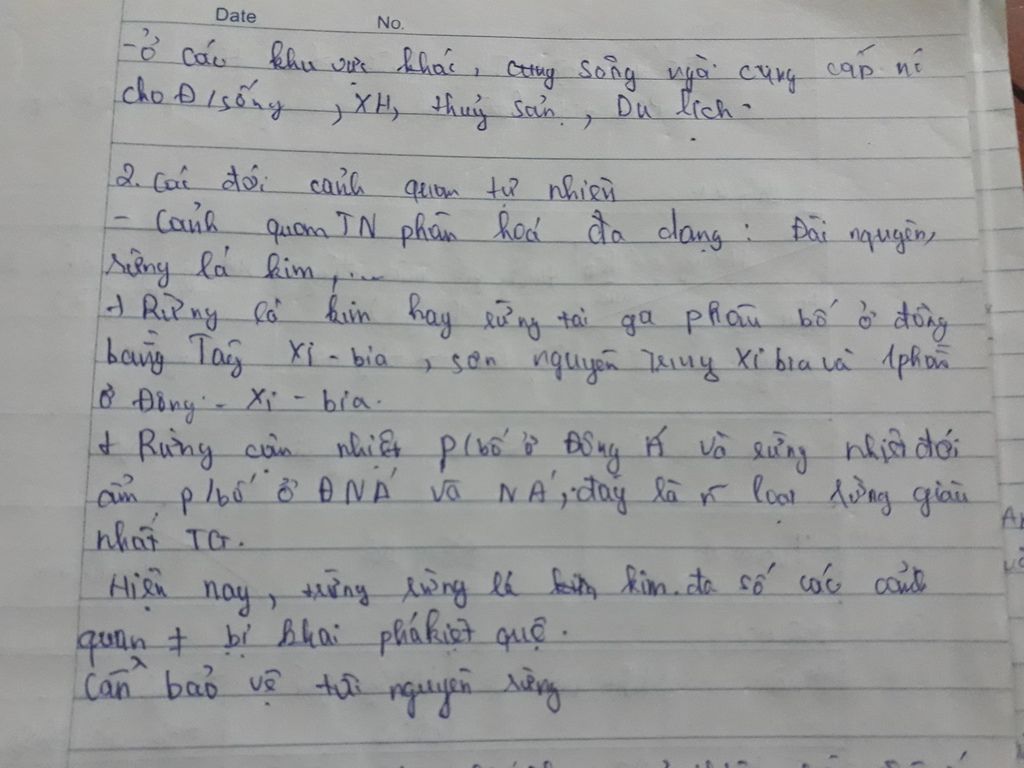 Date No.
- Ở các khu vực khác, sông ngòi cung cấp nc
cho Đ/sống, XH, thuỷ sản, Du lịch.
2. Các đới cảnh quan tự nhiên
- Cảnh quan TN phân hoá đa dạng: Đài nguyên,
rừng lá kim, ...
+ Rừng lá kim hay rừng tai ga phân bố ở đồng
bằng Tây Xi-bia, sơn nguyên Trung Xi bia và 1 phần
ở Đông - Xi - bia.
+ Rừng cận nhiệt p/bố ở Đông Á và rừng nhiệt đới
ẩm p/bố ở ĐNÁ và NÁ, đây là loại rừng giàu
nhất TG.
Hiện nay, rừng lá kim đa số các cảnh
quan ≠ bị khai phá kiệt quệ.
Cần bảo vệ tài nguyên rừng